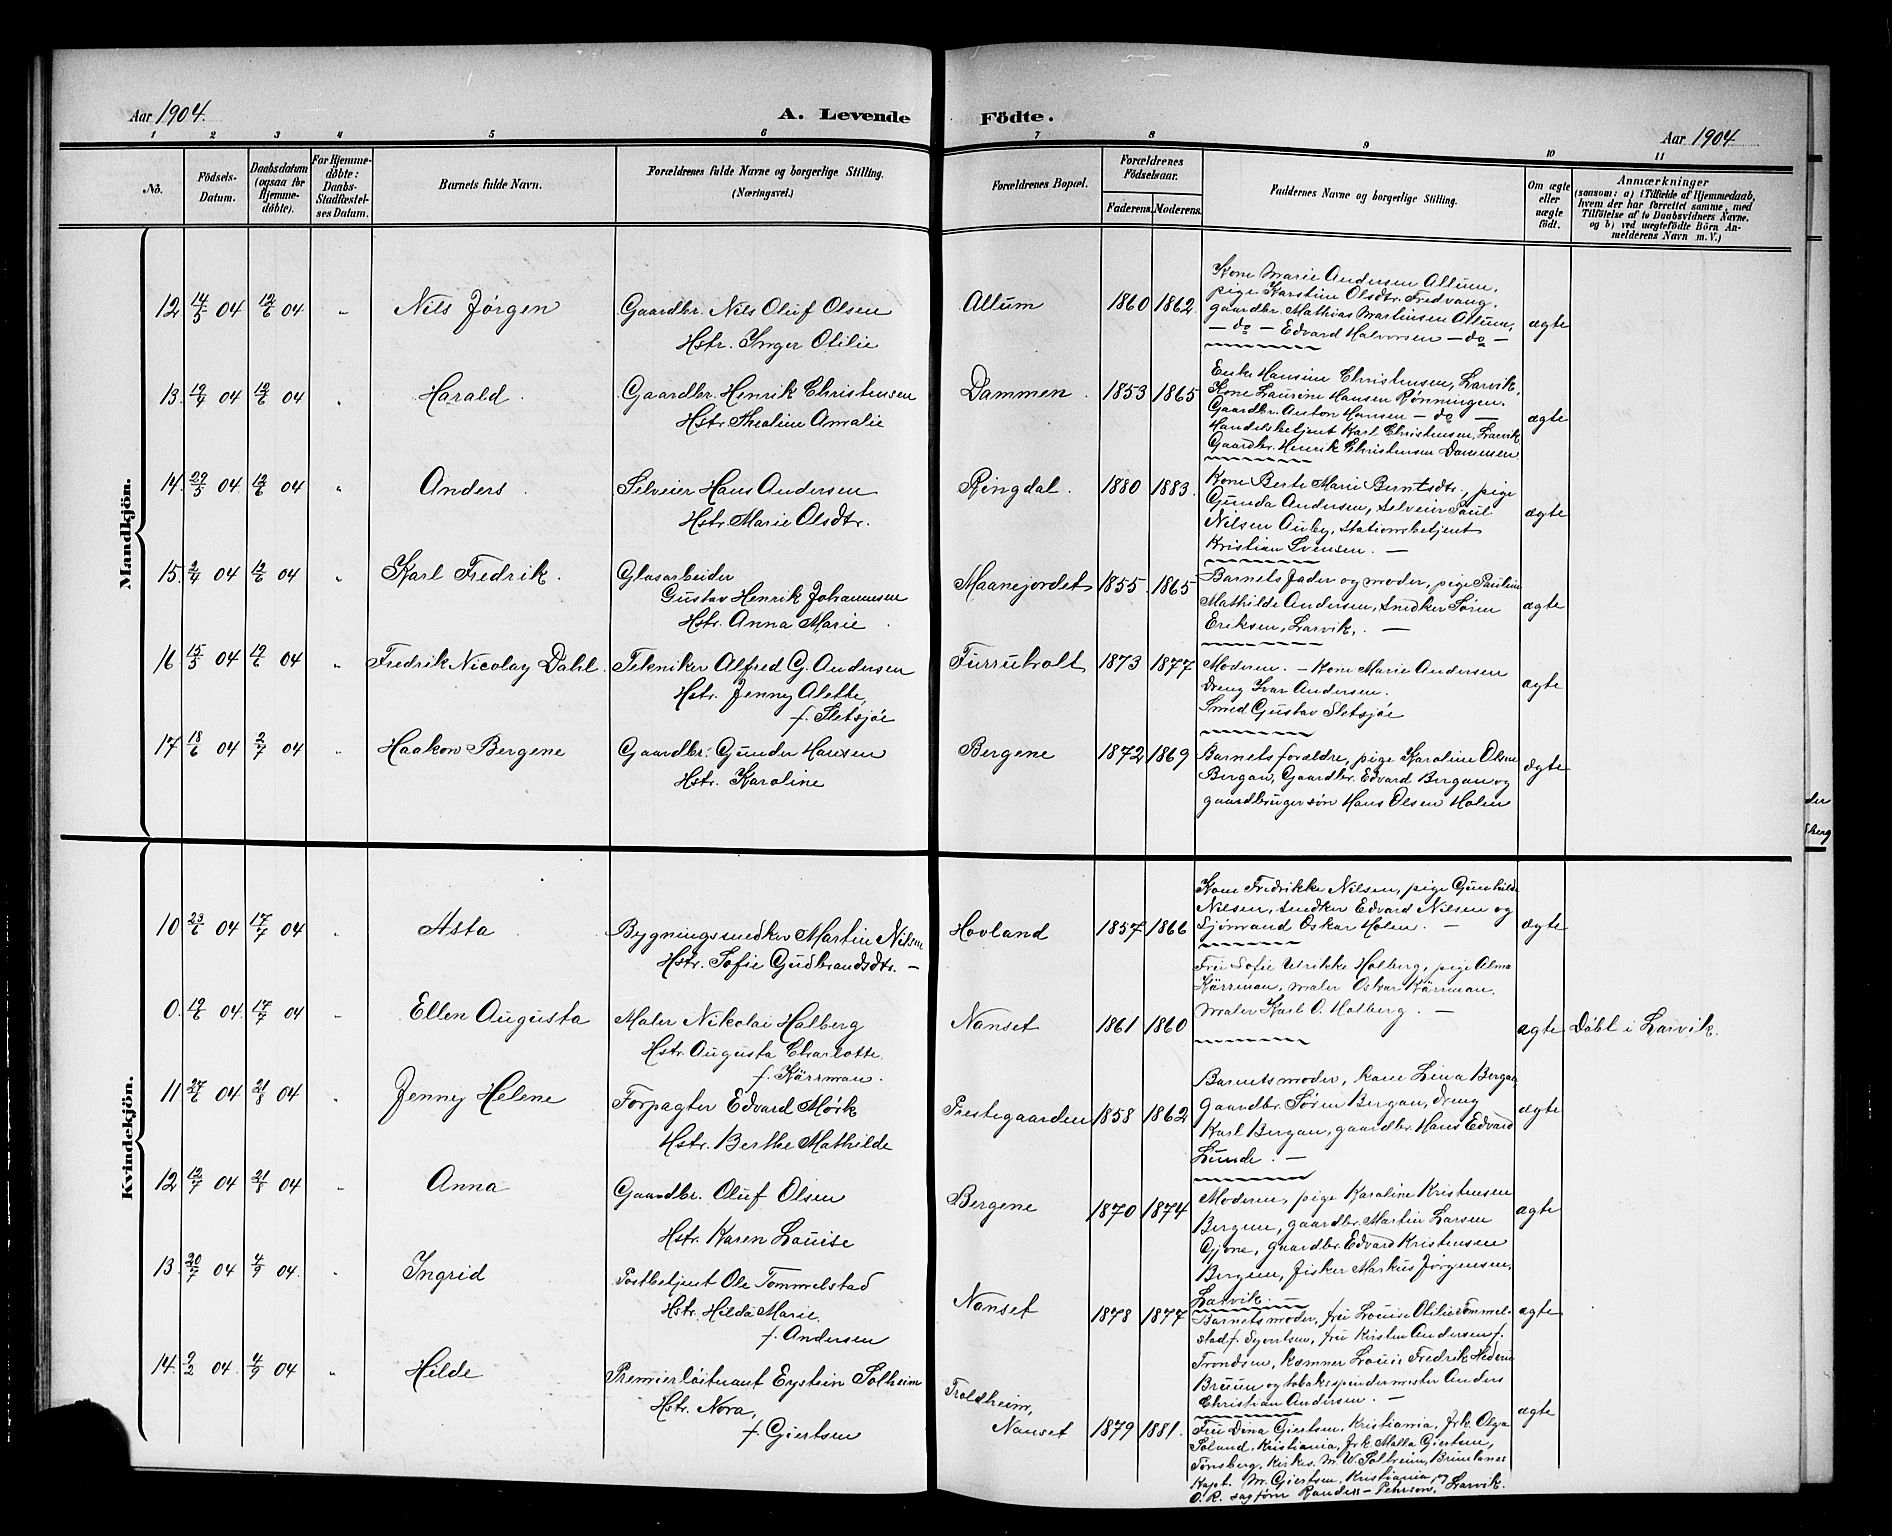 Aar 1904.
A. Levende Födte.
Aar 1904
1 2 3 4 5 6 7 8 9 10 11
No.
Födsels-Datum.
Daabsdatum (ogsaa for Hjemme-döbte).
For Hjemme-döbte: Daabs-Stadfæstel-ses Datum.
Barnets fulde Navn.
Forældrenes fulde Navne og borgerlige Stilling. (Næringsvei.)
Forældrenes Bopæl.
Forældrenes Födselsaar.
Faderens. Moderens.
Faddernes Navne og borgerlige Stilling.
Om ægte eller uægte födt.
Anmærkninger
(saasom: a) i Tilfælde af Hjemmedaab,
hvem der har forrettet samme, med
Tilföielse af to Daabsvidners Navne.
og b) ved uægtefödte Börn An-
melderens Navn m. V.)
Mandkjön.
12 14/5 04 12/6 04 " Nils Jørgen
Gaardbr. Nils Oluf Olsen
Hstr. Inger Otilie
Allum 1860 1862
Kone Marie Andersen Allum,
pige Karstine Olsdtr. Fredvang,
gaardbr. Mathias Martinsen Allum,
— do — Edvard Halvorsen — do —
ægte
13. 12/4 04 12/6 04 " Harald.
Gaardbr. Henrik Christensen
Hstr. Thealine Amalie
Dammen. 1853 1865
Enke Hansine Christensen, Larvik,
Kone Laurine Hansen Rønningen.
Gaardbr. Anton Hansen — do —
Handelsbetjent Karl Christensen, Larvik
Gaardbr. Henrik Christensen Dammen
ægte
14. 29/5 04. 12/6 04 " Anders.
Selveier Hans Andersen
Hstr. Marie Olsdtr.
Ringdal. 1880 1883.
Kone Berte Marie Berntsdtr., pige
Gunda Andersen, selveier Paul
Nilsen Auby, Stationsbetjent
Kristian Svensen. —
ægte
15. 2/4 04 12/6 04 " Karl Fredrik.
Glasarbeider
Gustav Henrik Johannesen
Hstr. Anna Marie
Maanejordet 1855 1865
Barnets fader og moder, pige Pauline
Mathilde Andersen, Snedker Søren
Eriksen, Larvik. —
ægte
16 15/5 04 12/6 04 " Fredrik Nicolay Dahl.
Tekniker Alfred G. Andersen
Hstr. Jenny Alette,
f. Sletsjøe
Furruholt 1873 1877
Moderen. — Kone Marie Andersen
Dreng Ivar Andersen.
Smed Gustav Sletsjøe
ægte
17. 18/6 04 2/7 04 " Haakon Bergene
Gaardbr. Gunder Hansen
Hstr. Karoline
Bergene 1872 1869
Barnets forældre, pige Karoline Olsen
Bergan, Gaardbr. Edvard Bergan og
gaardbrugersøn Hans Olsen Holm
ægte
Kvindekjön.
10 23/6 04 17/7 04 " Asta
Bygningssnedker Martin Nilsen
Hstr. Sofie Gudbrandsdtr. —
Hovland 1857 1866
Kone Fredrikke Nilsen, pige Gunhilde
Nilsen, Snedker Edvard Nilsen og
Sjømand Oskar Holm. —
ægte
0. 12/6 04. 17/7 04 " Ellen Augusta
Maler Nikolai Halberg
Hstr. Augusta Charlotte,
f. Kärrman.
Nanset 1861 1860
Frú Sofie Ulrikke Halberg, pige Alma
Kärrman, maler Oskar Kärrman,
maler Karl O. Halberg. —
ægte Döbt i Larvik.
11 27/6 04 21/8 04 " Jenny Helene
Forpagter Edvard Mørk
Hstr. Berthe Mathilde
Prestegaarden 1858 1862
Barnets moder, kone Lina Bergan
Gaardbr. Søren Bergan, dreng
Karl Bergan, gaardbr. Hans Edvard
Lunde. —
ægte
12 12/7 04 21/8 04 " Anna
Gaardbr. Oluf Olsen
Hstr. Karen Louise
Bergene 1870 1874
Moderen, pige Karoline Kristensen
Bergene, gaardbr. Martin Larsen
Gjone, gaardbr. Edvard Kristensen
Bergene, fisker Markus Jørgensen,
Larvik. —
ægte
13. 20/7 04 4/9 04. " Ingrid
Postbetjent Ole Tommelstad
Hstr. Hilda Marie,
f. Andersen
Nanset 1878 1877
Barnets moder, frú Louise Otilie Tommel-
stad f. Syvertsen, frú Kirsten Andersen f.
Trondsen, Kæmner Louis Fredrik
Bruun og tobakspindermester Anders
Christian Andersen. —
ægte
14. 9/2 04. 4/9 04 " Hilde
Premierløitnant Eystein Solheim
Hstr. Nora,
f. Giertsen
Troldheim,
Nanset 1879 1881.
Frú Dina Giertsen, Kristiania, frk. Olga
Soland, Kristiania, frk. Malla Giertsen,
Tønsberg, Kirkes. M. W. Solheim, Brunlanes
Kapt. M. Giertsen, Kristiania og
O. R. sagfører Randers-Pehrson, Larvik.
ægte